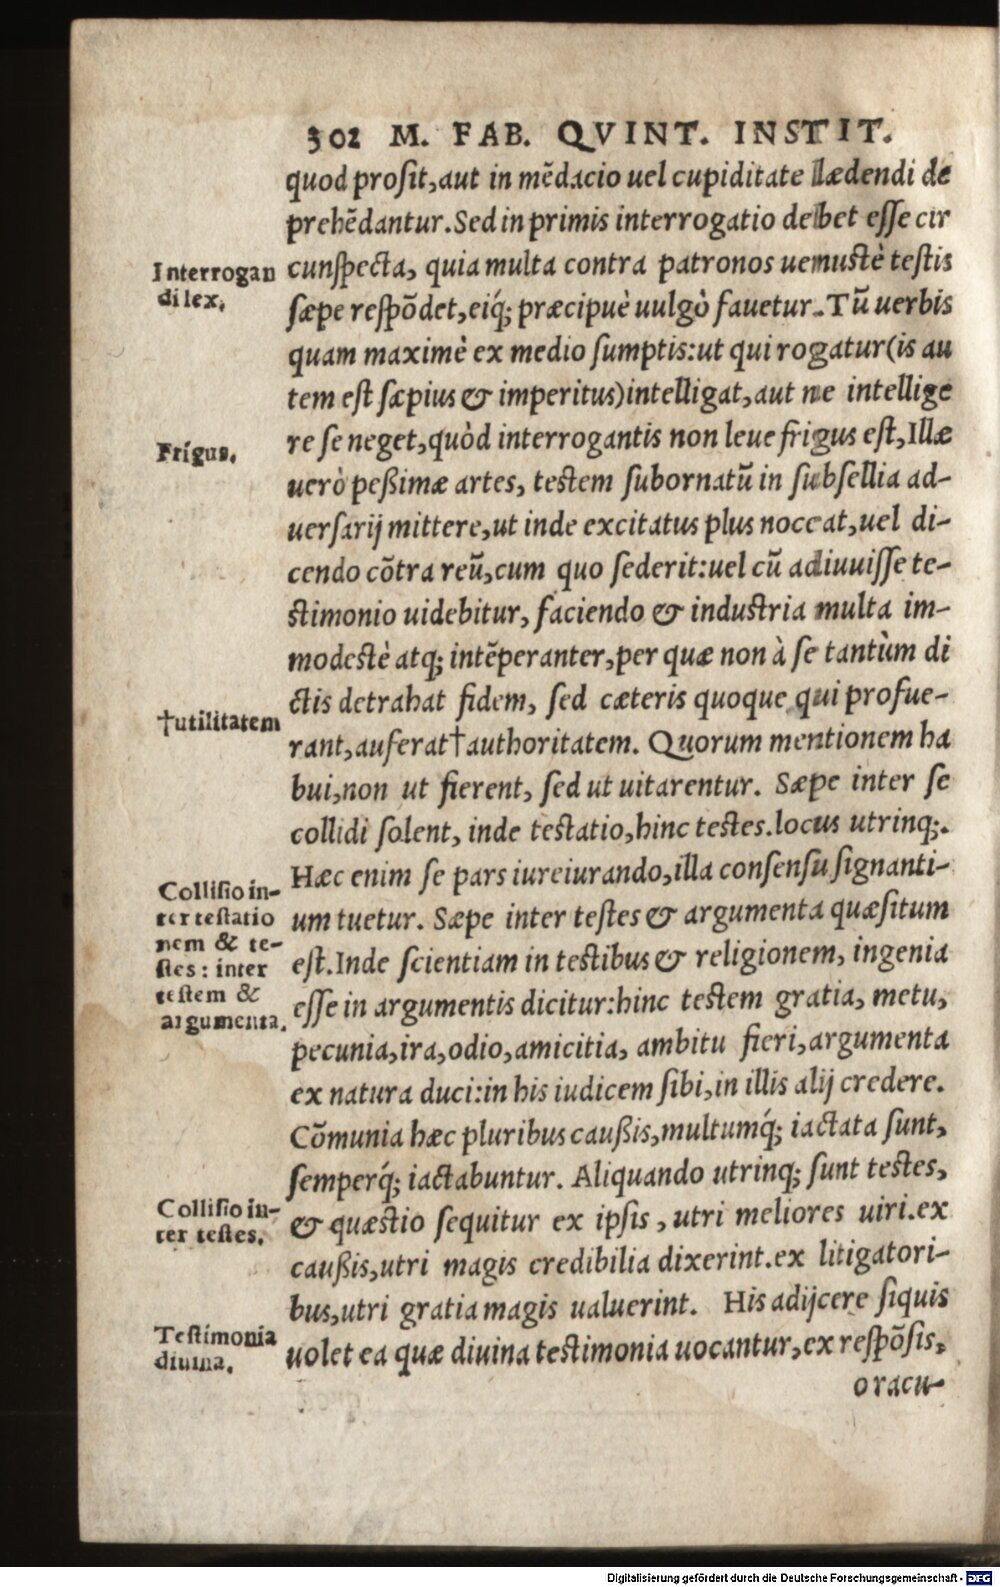 302 M. FAB. QVINT. INSTIT.
quod proſit, aut in mēdacio uel cupiditate lædendi de
prehēdantur. Sed in primis interrogatio debet eſſe cir
Interrogan
di lex.
cunſpecta, quia multa contra patronos uenustè testis
ſæpe reſpōdet, eiq́; præcipuè uulgò fauetur. Tū uerbis
quam maximè ex medio ſumptis: ut qui rogatur (is au
tem est ſæpius & imperitus) intelligat, aut ne intellige
Frigus.
re ſe neget, quòd interrogantis non leue frigus est, Illæ
uerò peßimæ artes, testem ſubornatū in ſubſellia ad-
uerſarij mittere, ut inde excitatus plus noceat, uel di-
cendo cōtra reū, cum quo ſederit: uel cū adiuuiſſe te-
stimonio uidebitur, faciendo & industria multa im-
modestè atq; intēperanter, per quæ non à ſe tantùm di
ctis detrahat fidem, ſed cæteris quoque qui profue-
†utilitatem
rant, auferat † authoritatem. Quorum mentionem ha
bui, non ut fierent, ſed ut uitarentur. Sæpe inter ſe
collidi ſolent, inde testatio, hinc testes. locus utrinq;.
Hæc enim ſe pars iureiurando, illa conſenſu ſignanti-
Colliſio in-
ter teſtatio
nem & te-
ſtes: inter
teſtem &
argumenta.
um tuetur. Sæpe inter testes & argumenta quæſitum
est. Inde ſcientiam in testibus & religionem, ingenia
eſſe in argumentis dicitur: hinc testem gratia, metu,
pecunia, ira, odio, amicitia, ambitu fieri, argumenta
ex natura duci: in his iudicem ſibi, in illis alij credere.
Cōmunia hæc pluribus caußis, multumq́; iactata ſunt,
ſemperq́; iactabuntur. Aliquando utrinq; ſunt testes,
Colliſio in-
ter teſtes.
& quæstio ſequitur ex ipſis, utri meliores uiri. ex
caußis, utri magis credibilia dixerint. ex litigatori-
bus, utri gratia magis ualuerint. His adijcere ſiquis
Teſtimonia
diuina.
uolet ea quæ diuina testimonia uocantur, ex reſpōſis,
oracu-
Digitalisierung gefördert durch die Deutsche Forschungsgemeinschaft - DFG